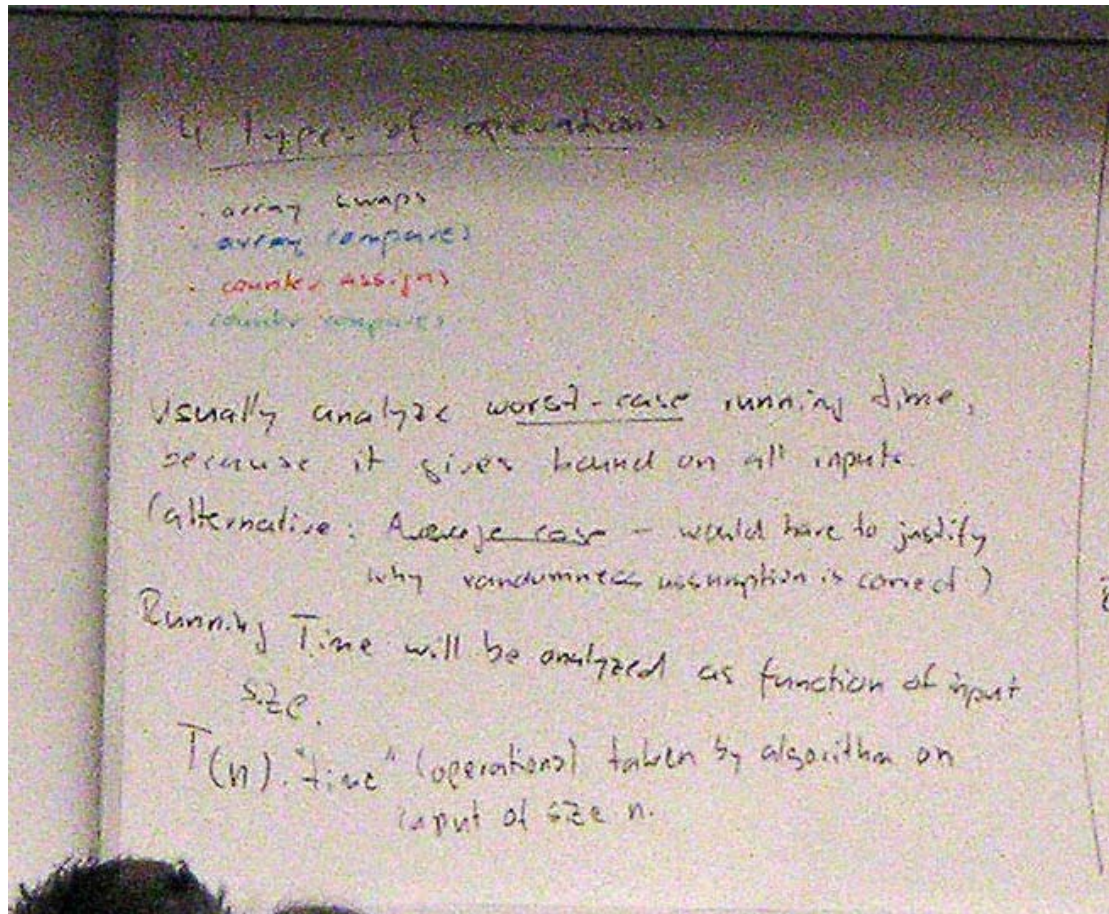 4 Types of operations
· array swaps
· array compares
· counter assigns
· counter compares
Usually analyze worst-case running time,
because it gives bound on all inputs.
(alternative: Average case - would have to justify
why randomness assumption is correct)
Running Time will be analyzed as function of input
size.
T(n): "time" (operations) taken by algorithm on
input of size n.